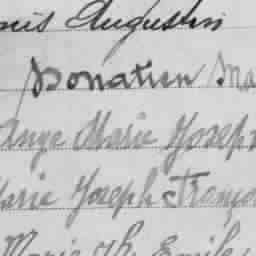 Augustin
Donatien Ma
Ange Marie Joseph
Marie Joseph François
Marie Th. Emile